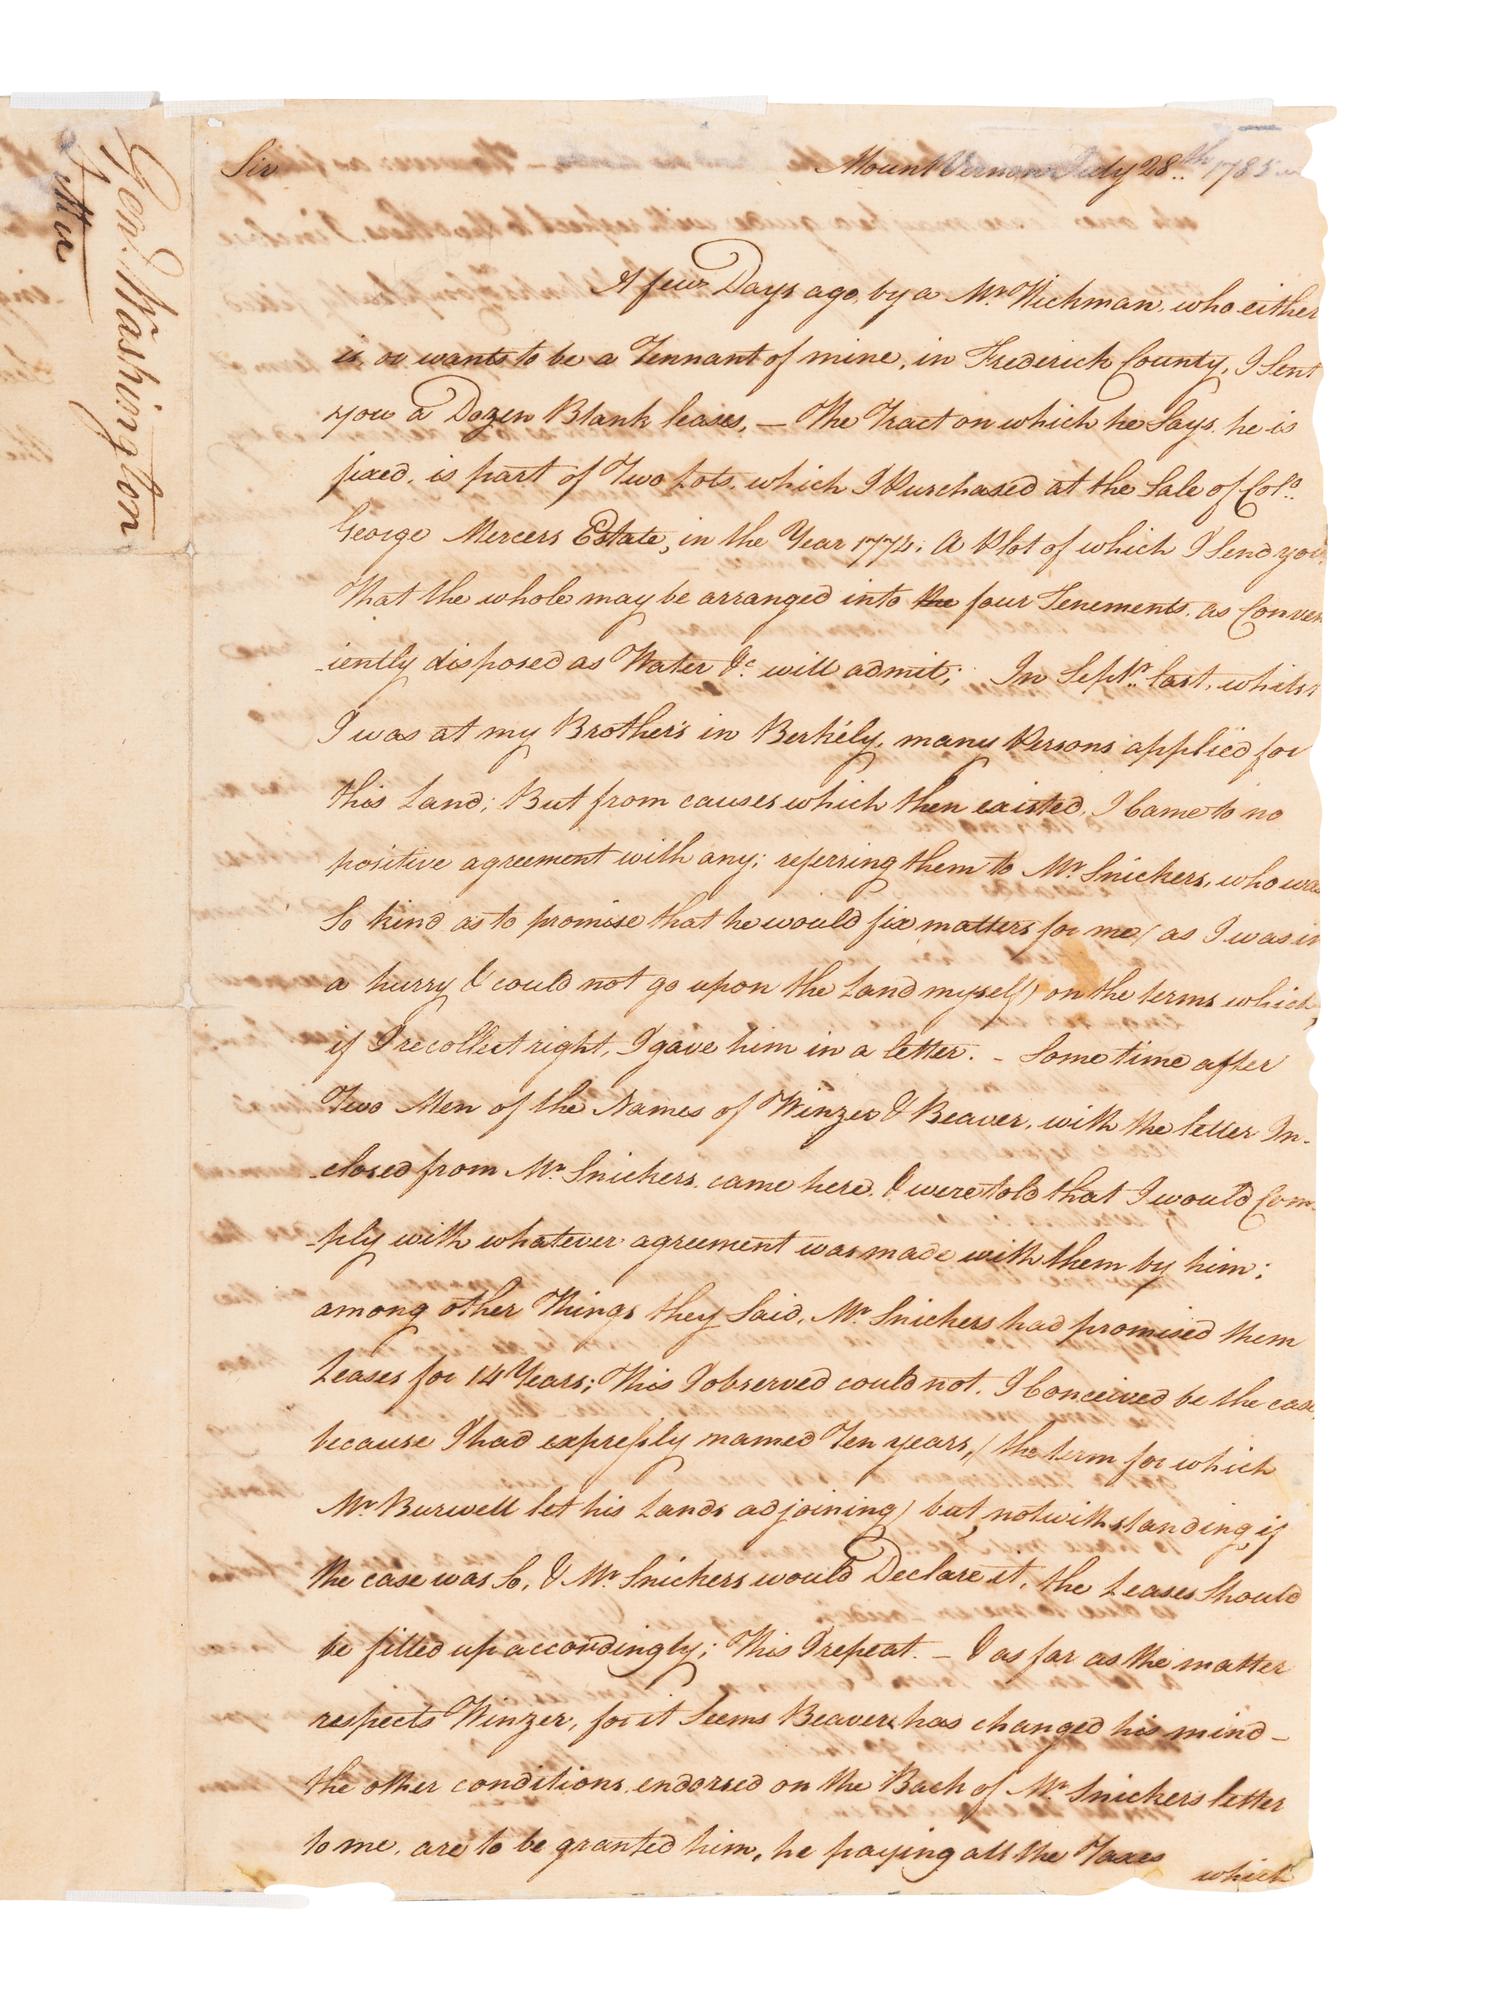 Genl. Washington
Letter
Sir
Mount Vernon July 28th 1785
A few Days ago, by a Mr. Wickman, who either
is, or wants to be a Tennant of mine, in Frederick County, I Sent
you a Dozen Blank leases, — The Tract on which he Says, he is
fixed, is part of Two Lots, which I Purchased at the Sale of Colo.
George Mercers Estate, in the Year 1774; A Plot of which I Send you
That the whole may be arranged into the four Tenements, as Conven
-iently disposed as Water &c. will admit; In Septr. last, whilst
I was at my Brother's in Berkély, many Persons applied for
this Land; But from causes which then existed, I Came to no
positive agreement with any; referring them to Mr. Snickers, who was
So kind as to promise that he would fix matters for me, (as I was in
a hurry & could not go upon the Land myself) on the terms which,
if I recollect right, I gave him in a letter. - Some time after
Two Men of the Names of Winzer & Beaver, with the letter In-
-closed from Mr. Snickers, came here, & were told that I would Com-
-ply with whatever agreement was made with them by him;
among other Things they Said, Mr. Snickers had promised them
Leases for 14 Years; This I observed could not, I Conceived be the case,
because I had expressly named Ten years, (the term for which
Mr. Burwell let his Lands adjoining) but, notwithstanding, if
the case was So, & Mr. Snickers would Declare it, the Leases Should
be filled up accordingly; This I repeat. - & as far as the matter
respects Winzer, for it Seems Beaver has changed his mind -
the other conditions, endorsed on the Back of Mr. Snickers letter
to me, are to be granted him, he paying all the Taxes
which